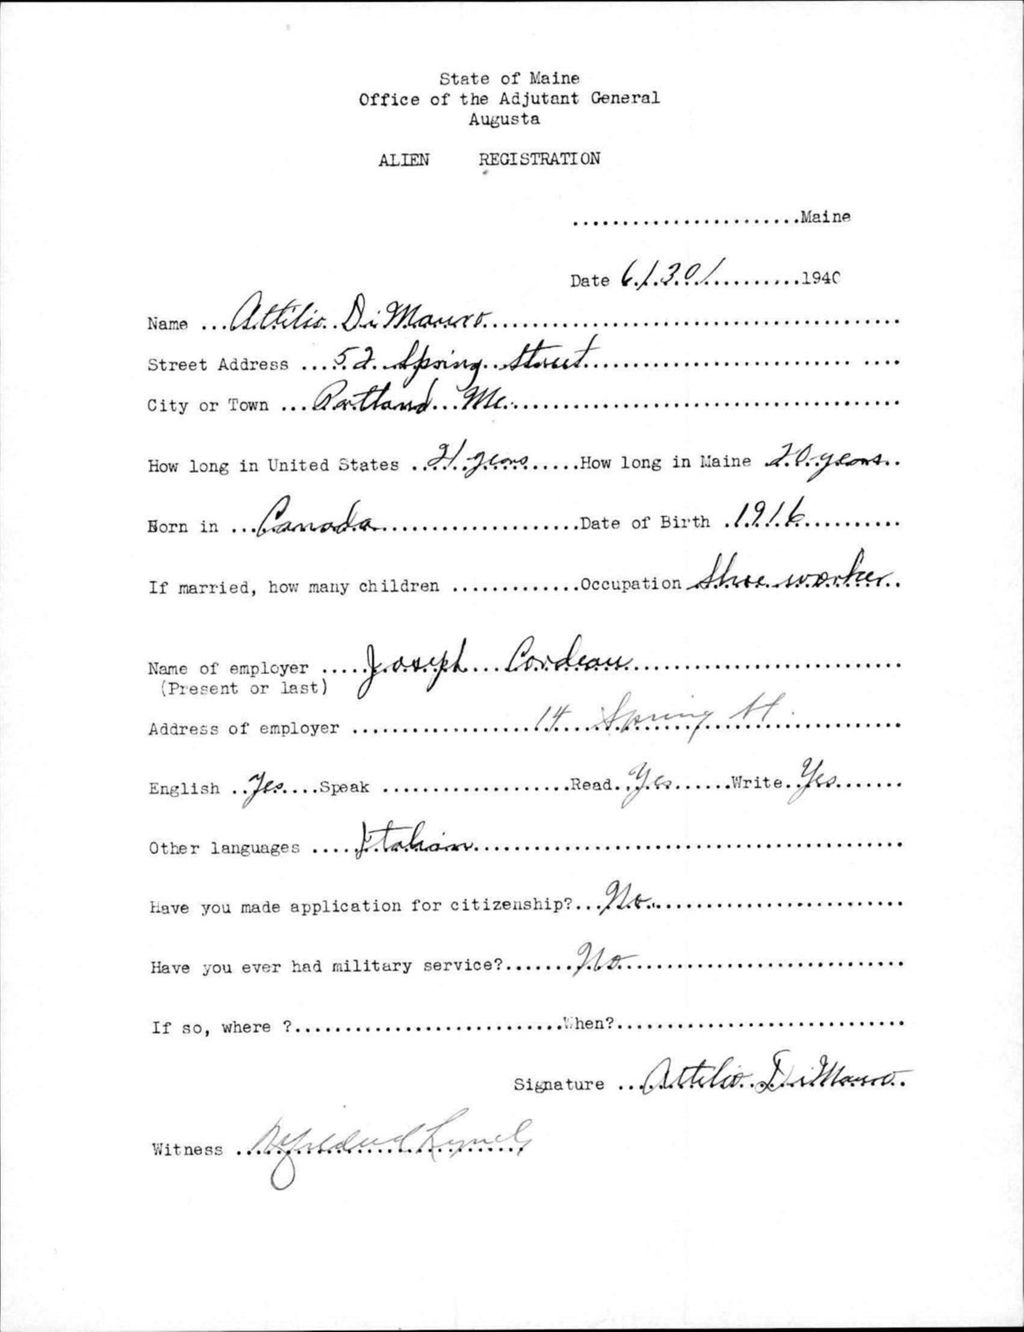 State of Maine
Office of the Adjutant General
Augusta
ALIEN REGISTRATION
.......................Maine
Date 6/30/..........1940
Name ...Attilio DiMauro..........................................
Street Address ...52 Spring Street................................
City or Town ...Portland Me.......................................
How long in United States ..21 years......How long in Maine ..20 years..
Born in ...Canada.....................Date of Birth .1916..........
If married, how many children .............Occupation Shoe worker..
Name of employer .....Joseph ...........................
(Present or last)
Address of employer ..................14 Spring St...............
English ..Yes....Speak ...................Read..Yes......Write..Yes.......
Other languages .....Italian...........................................
Have you made application for citizenship?...No..........................
Have you ever had military service?.......No............................
If so, where ?...........................When?.............................
Signature ...Attilio DiMauro.
Witness ..